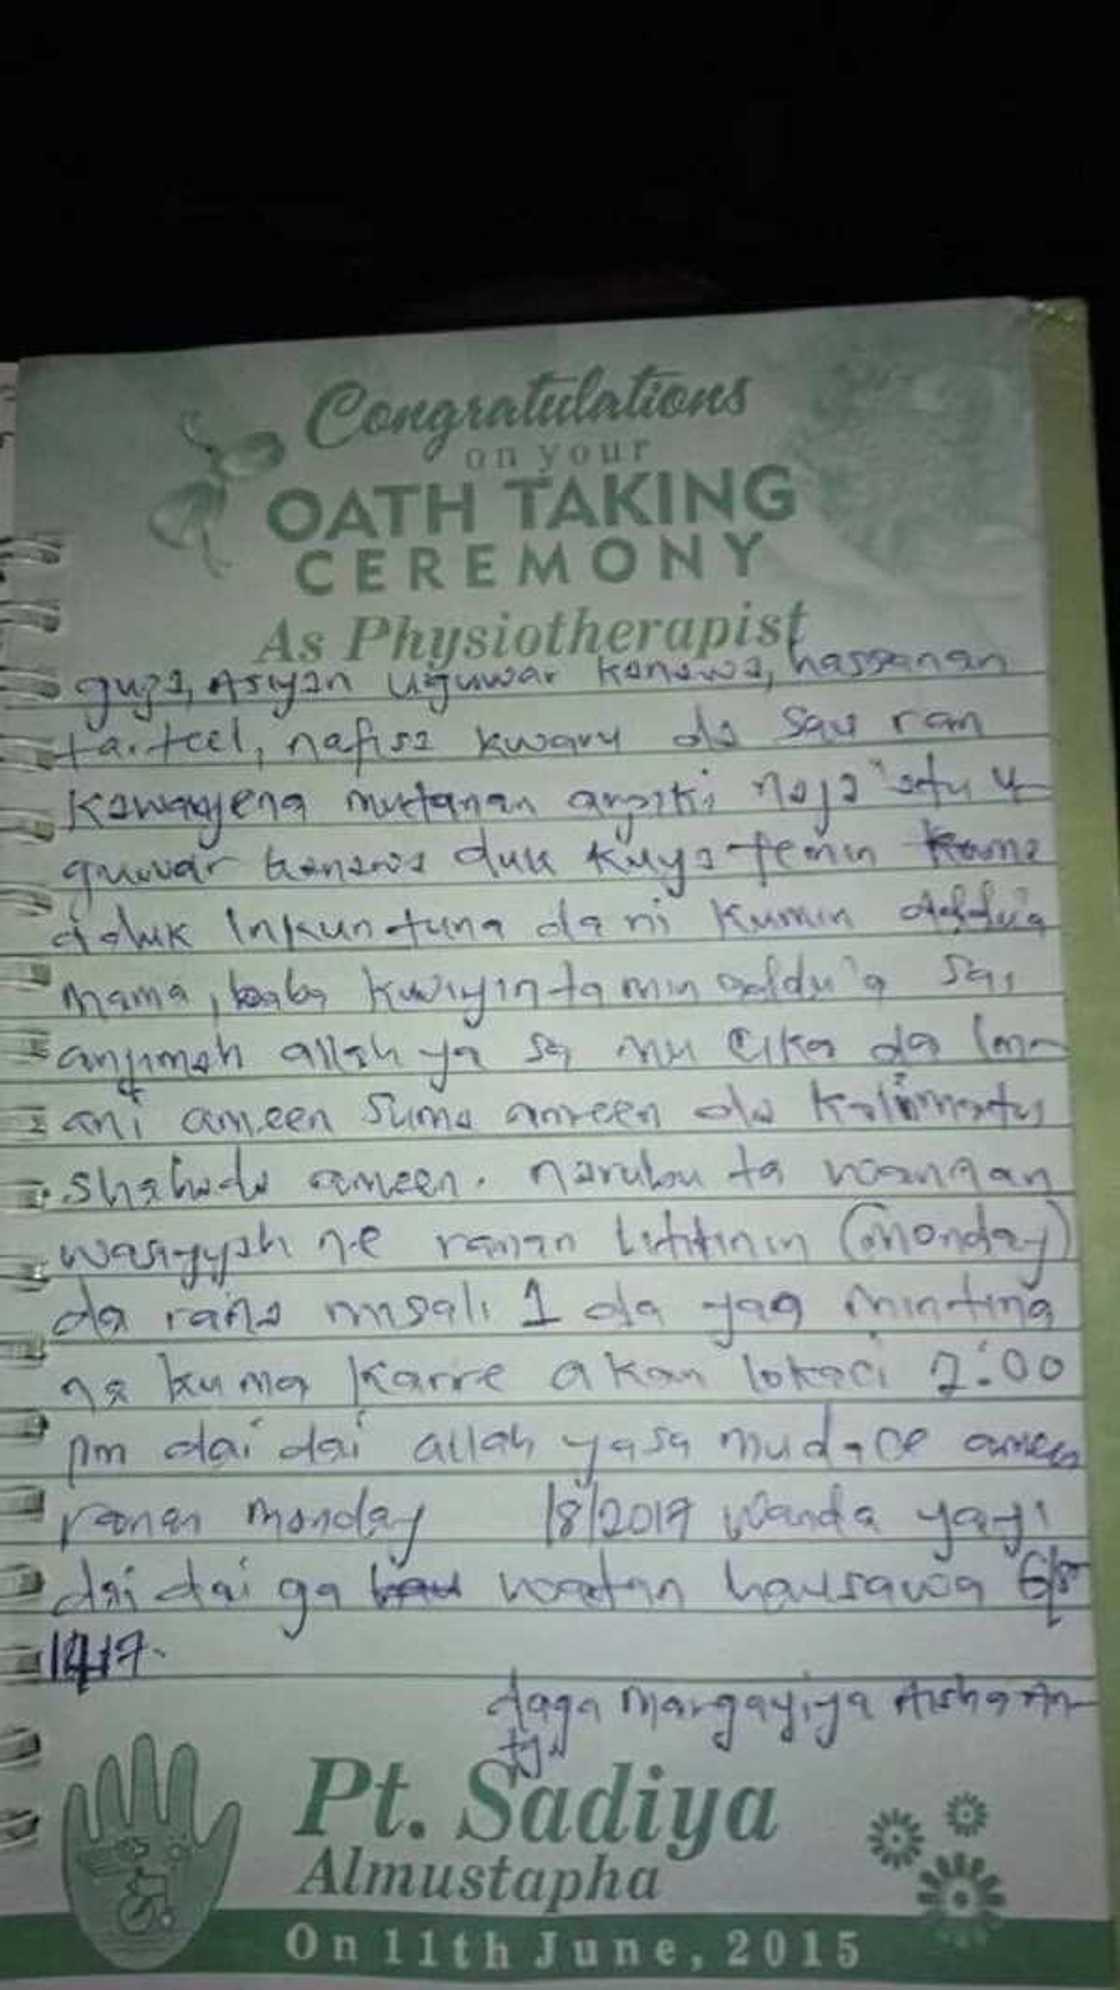 Congratulations
on your
OATH TAKING
CEREMONY
As Physiotherapist
guza, Asiyan Uguwar Kanawa, hassanan
tarteel, nafisa kwaru da sau ran
Kawayena mutanan arziki naja'atu u
guwar kanawa duk kuya femin kuma
daluk Inkuntuna dani kumin addu'a
mama, baba kuyinta min addu'a sai
anjimah allah ya sa mu cika da Im
ani ameen suma ameen da kalimatus
shahada ameen. narubuta wangan
wasiyyah ne ranan litinin (monday)
da rana misali 1 da yan minting
na kuma karre akan lokaci 2:00
pm dai dai allah yasa mudace ameen
ranan monday 1/8/2017 wanda yayi
dai dai ga watan hausawa 6/
daga margayiya Aisha An
Pt. Sadiya
Almustapha
On 11th June, 2015